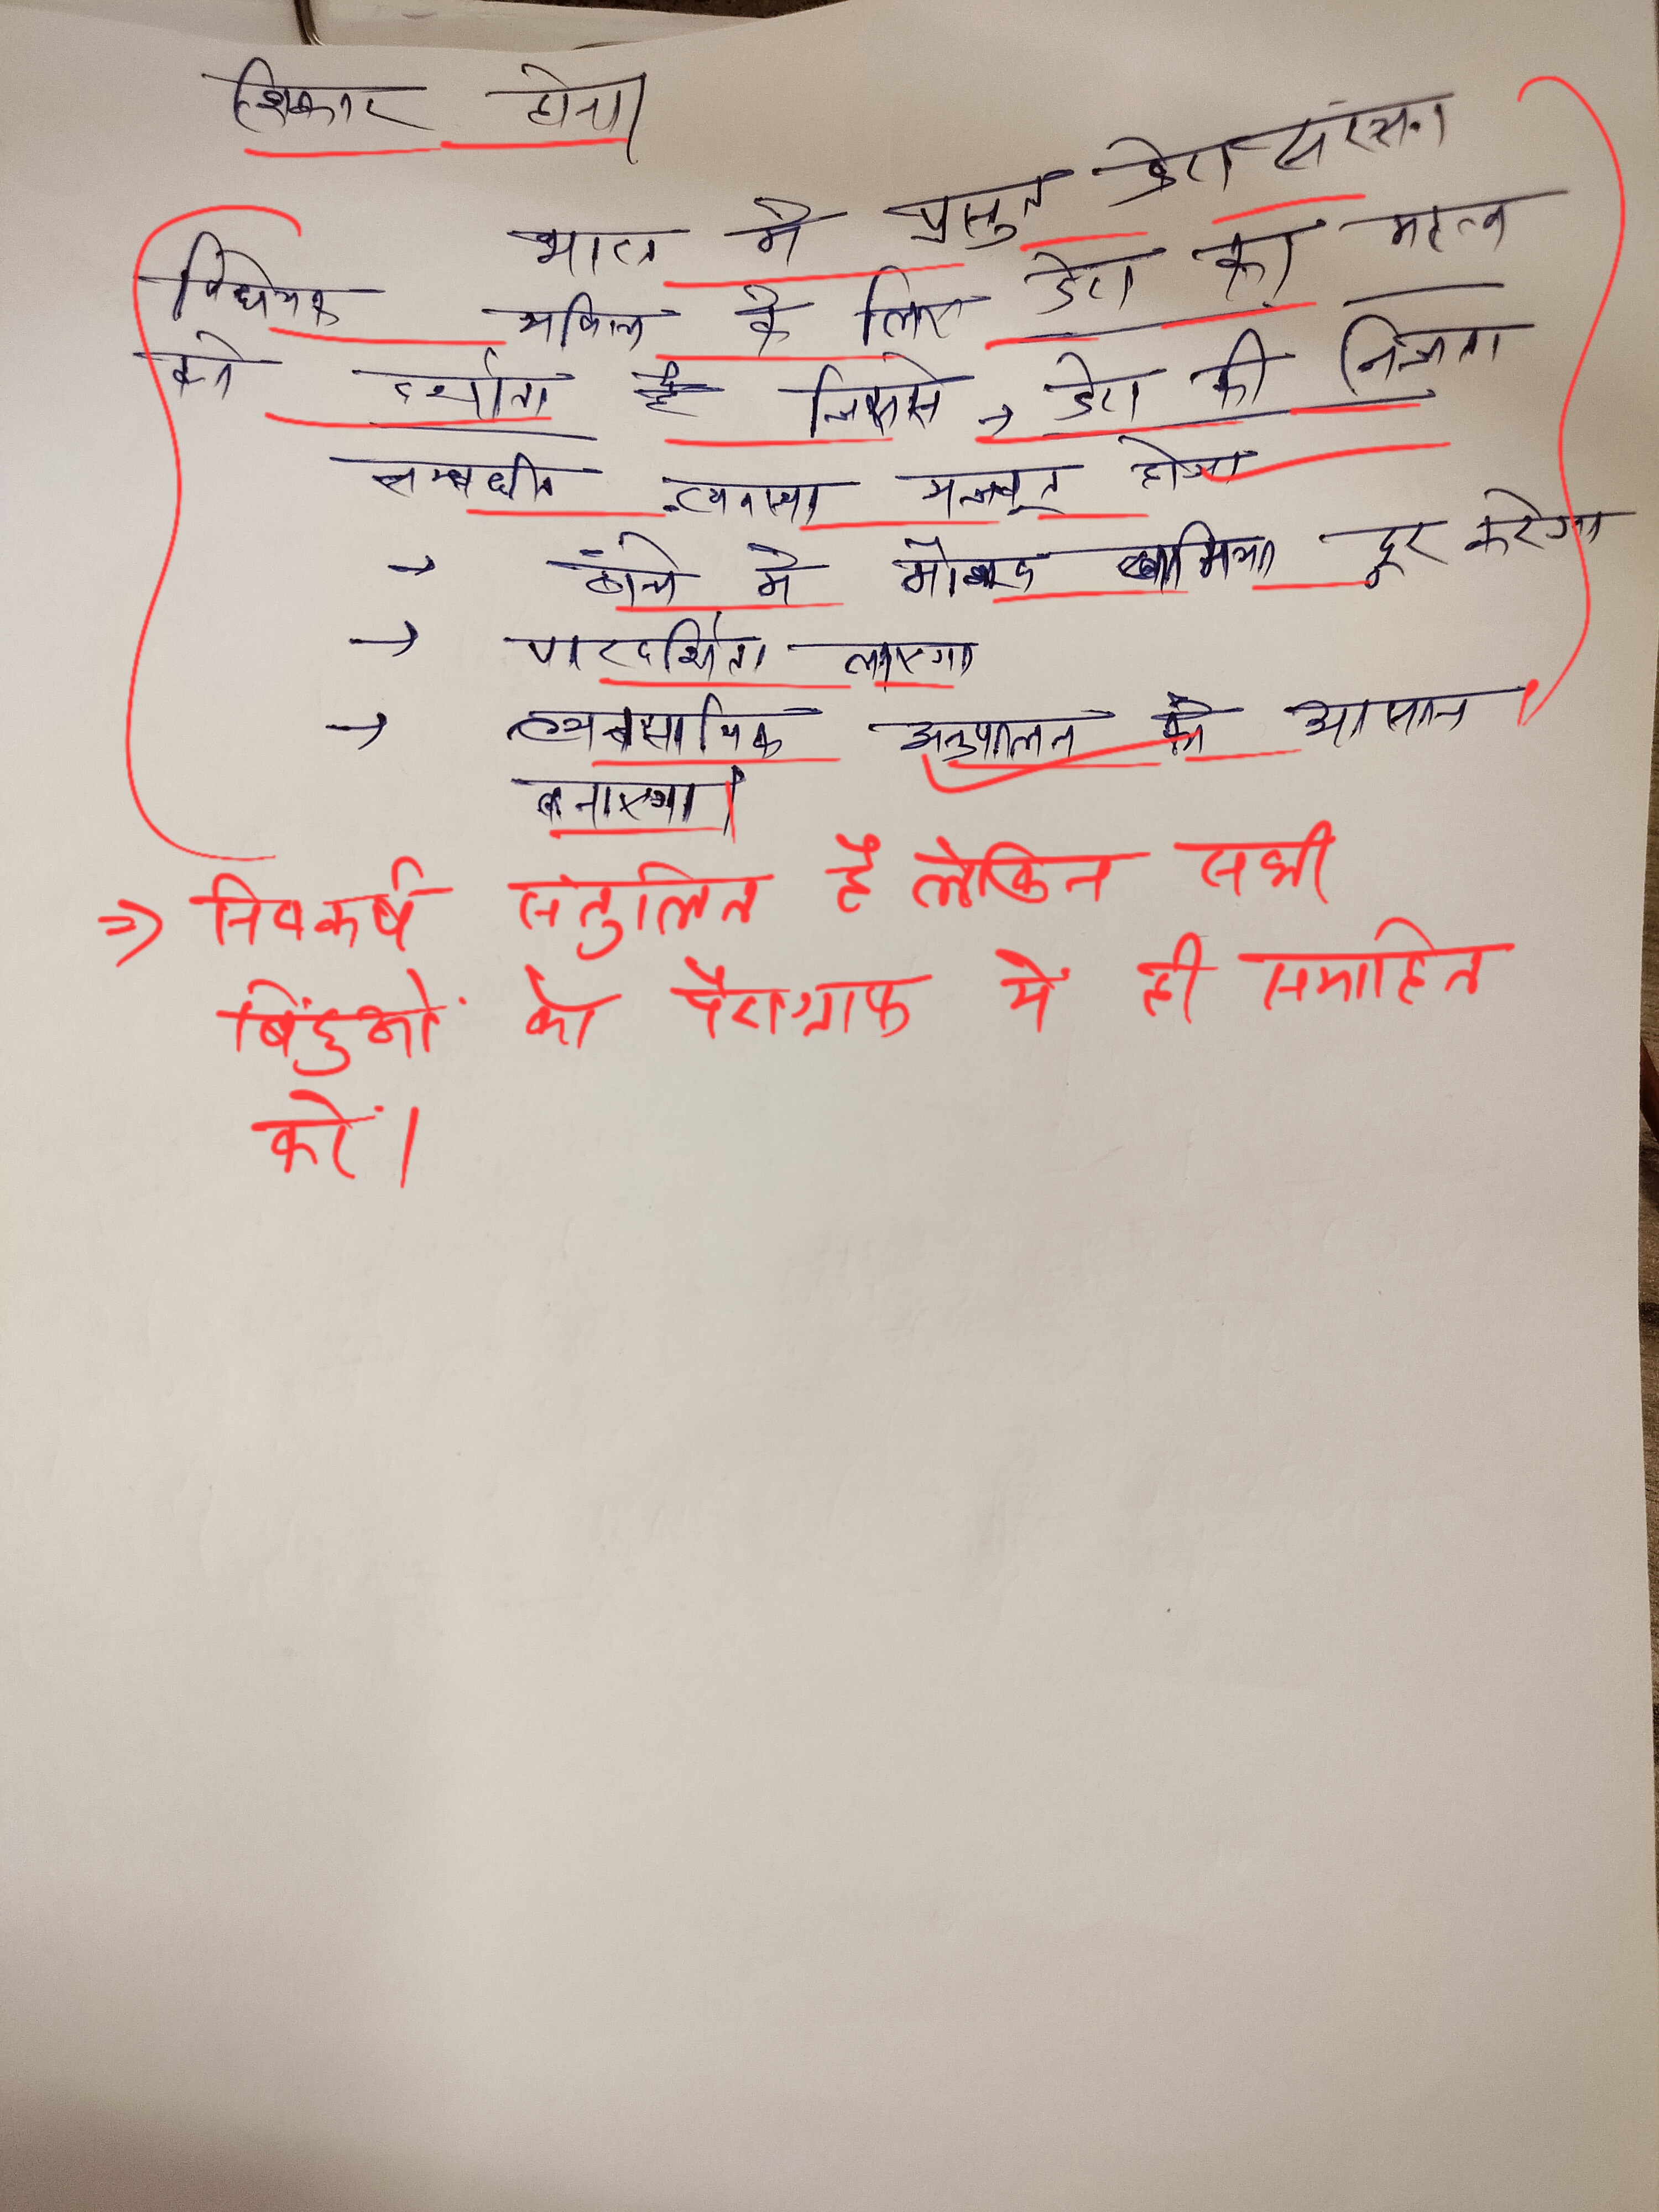 शिकार होना।
भारत में प्रस्तुत डेटा संरक्षण
विधेयक भविष्य के लिए डेटा का महत्व
को दर्शाता है जिससे → डेटा की निजता
सम्बधीत व्यवस्था मजबूत होगा
→ ढाँचे में मौजूद खामिया दूर करेगा
→ पारदर्शिता लाएगा
→ व्यवसायिक अनुपालन को आसान
बनाएगा।
⇒ निष्कर्ष संतुलित है लेकिन सभी
बिंदुओं को पैराग्राफ में ही समाहित
करें।